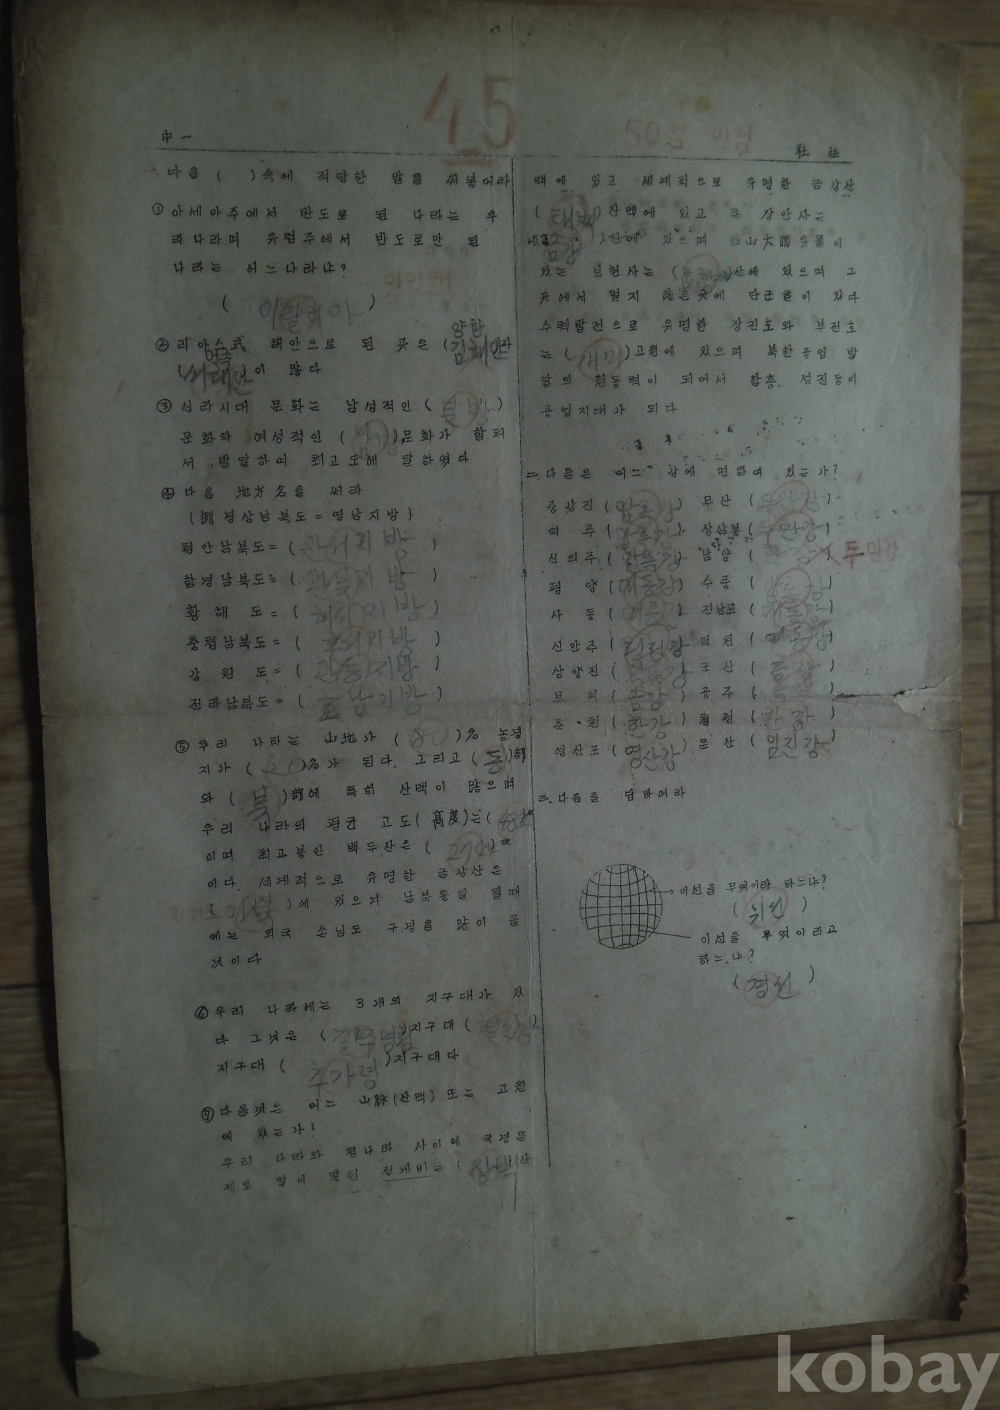 45
50점 만점
中一
社 会
一 다음 ( )속에 적당한 말을 써 넣어라
① 아세아주에서 반도로 된 나라는 우
리나라며 유럽주에서 반도로만 된
나라는 어느나라냐?
( 이탈리아 )
② 리아스式 해안으로 된 곳은 (
이 많다
③ 신라시대 문화는 남성적인 ( 북방 )
문화와 여성적인 ( )문화가 합처
서 발달하여 최고도에 달하였다
④ 다음 地方名을 써라
(例 경상남북도=영남지방)
평안남북도=( 관서지방 )
함경남북도=( 관북지방 )
황 해 도=( 해서지방 )
충청남북도=( 호서지방 )
강 원 도=( 관동지방 )
전라남북도=( 호남지방 )
⑤ 우리 나라는 山地가 ( 80 )% 농경
지가 ( 20 )%가 된다. 그리고 ( 동 )部
와 ( 북 )部에 특히 산맥이 많으며
우리 나라의 평균 고도(高度)는( )m
이며 최고봉인 백두산은 ( )m
이다. 세계적으로 유명한 금강산은
( )에 있으며 남북통일 될때
에는 외국 손님도 구경을 많이 올
것이다
⑥ 우리 나라에는 3개의 지구대가 있
다 그것은 ( 길주명천 )지구대 ( 형산강 )
지구대 ( 추가령 )지구대다
⑦ 다음것은 어느 山脈(산맥) 또는 고원
에 있는가?
우리 나라와 청나라 사이에 국경문
제로 말이 많던 정계비는 ( 장백 )산
맥에 있고 세계적으로 유명한 금강산
( 태백 )산맥에 있고 큰 장안사는
( 금강 )산에 있으며 西山大師유물이
있는 보현사는 ( )산에 있으며 그
곳에서 멀지 않은곳에 단군굴이 있다
수력발전으로 유명한 장진호와 부전호
는 ( 개마 )고원에 있으며 북한공업 발
달의 원동력이 되어서 함흥. 성진등이
공업지대가 되다
二 다음은 어느 강에 면하여 있는가?
중강진 ( 압록강 ) 무산 ( 두만강 )
여 주 ( ) 상삼봉 ( 두만강 )
신의주 ( 압록강 ) 남양 ( 강 ) × 두만강
평 양 ( 대동강 ) 수풍 ( 압록강 )
사 동 ( 대동강 ) 진남포 ( 대동강 )
신안주 ( 청천강 ) 덕천 ( 대동강 )
삼랑진 ( 낙동강 ) 군산 ( 금강 )
부 여 ( 금강 ) 공주 ( 금강 )
( 한강 ) ( 한강 )
영산포 ( 영산강 ) 문산 ( 임진강 )
三. 다음을 답하여라
이선을 무엇이라 하느냐?
( 위선 )
이선을 무엇이라고
하느냐?
( 경선 )
kobay